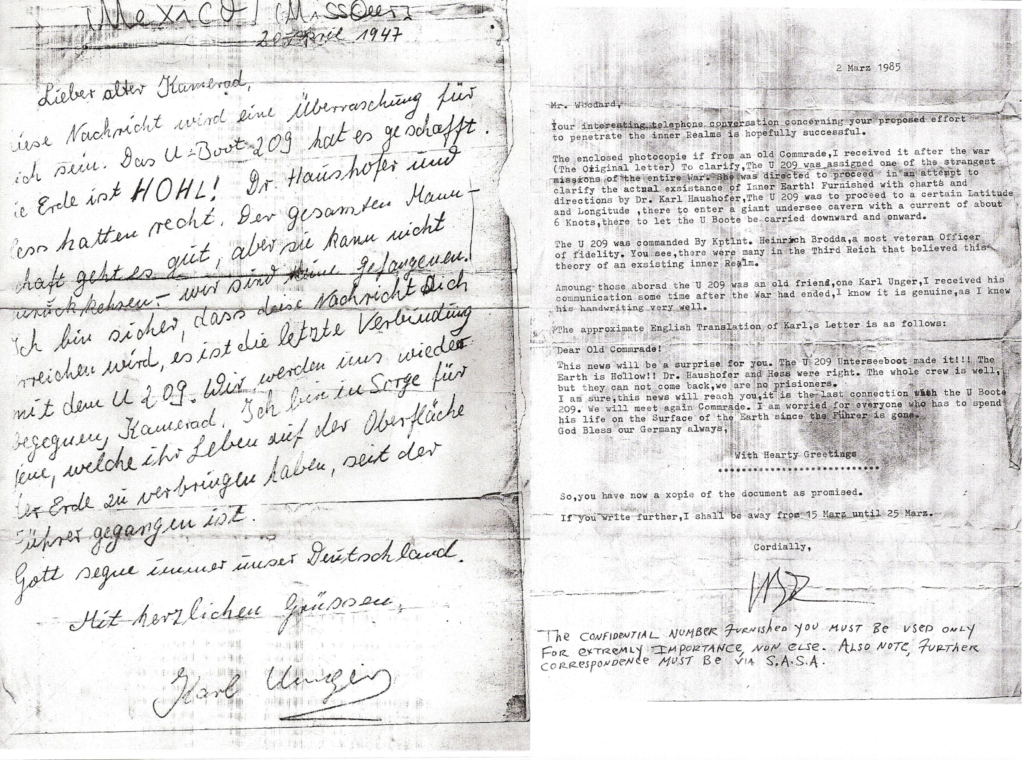 (Mexico) (Missouri)
20 April 1947
Lieber alter Kamerad,
iese Nachricht wird eine Überraschung für
ich sein. Das U-Boot 209 hat es geschafft.
ie Erde ist HOHL! Dr. Haushofer und
less hatten recht. Der gesamten Mann-
haft geht es gut, aber sie kann nicht
wir sind keine Gefangenen.
ch bin sicher, dass deise Nachricht Dich
rreichen wird, es ist die letzte Verbindung
mit dem U 209. Wir werden uns wieder
begegnen, Kamerad. Ich bin in Sorge für
eine, welche ihr Leben auf der Oberfläche
er Erde zu verbringen haben, seit der
ührer gegangen ist.
Gott segne immer unser Deutschland.
Mit herzlichen Grüssen,
Karl Unger
2 Marz 1985
Mr. Woodard,
Your interesting telephone conversation concerning your proposed effort
to penetrate the inner Realms is hopefully successful.
The enclosed photocopie if from an old Commrade,I received it after the war
(The Original letter) To clarify,The U 209 was assigned one of the strangest
missions of the entire War. She was directed to proceed in an attempt to
clarify the actual exsistance of Inner Earth! Furnished with charts and
directions by Dr. Karl Haushofer,The U 209 was to proceed to a certain Latitude
and Longitude ,there to enter a giant undersee cavern with a current of about
6 Knots,there to let the U Boote be carried downward and onward.
The U 209 was commanded By Kptlnt. Heinrich Brodda,a most veteran Officer
of fidelity. You see,there were many in the Third Reich that believed this
theory of an exsisting inner Realm.
Amoung those aborad the U 209 was an old friend,one Karl Unger,I received his
communication some time after the War had ended,I know it is genuine,as I knew
his handwriting very well.
The approximate English Translation of Karl,s Letter is as follows:
Dear Old Commrade!
This news will be a surprise for you. The U 209 Unterseeboot made it!!! The
Earth is Hollow!! Dr. Haushofer and Hess were right. The whole crew is well,
but they can not come back,we are no prisioners.
I am sure,this news will reach you,it is the last connection with the U Boote
209. We will meet again Commrade. I am worried for everyone who has to spend
his life on the Surface of the Earth since the Führer is gone.
God Bless our Germany always,
With Hearty Greetings
So,you have now a xopie of the document as promised.
If you write further,I shall be away from 15 Marz until 25 Marz.
Cordially,
THE CONFIDENTIAL NUMBER FURNISHED YOU MUST BE USED ONLY
FOR EXTREMLY IMPORTANCE, NON ELSE. ALSO NOTE, FURTHER
CORRESPONDENCE MUST BE VIA S.A.S.A.